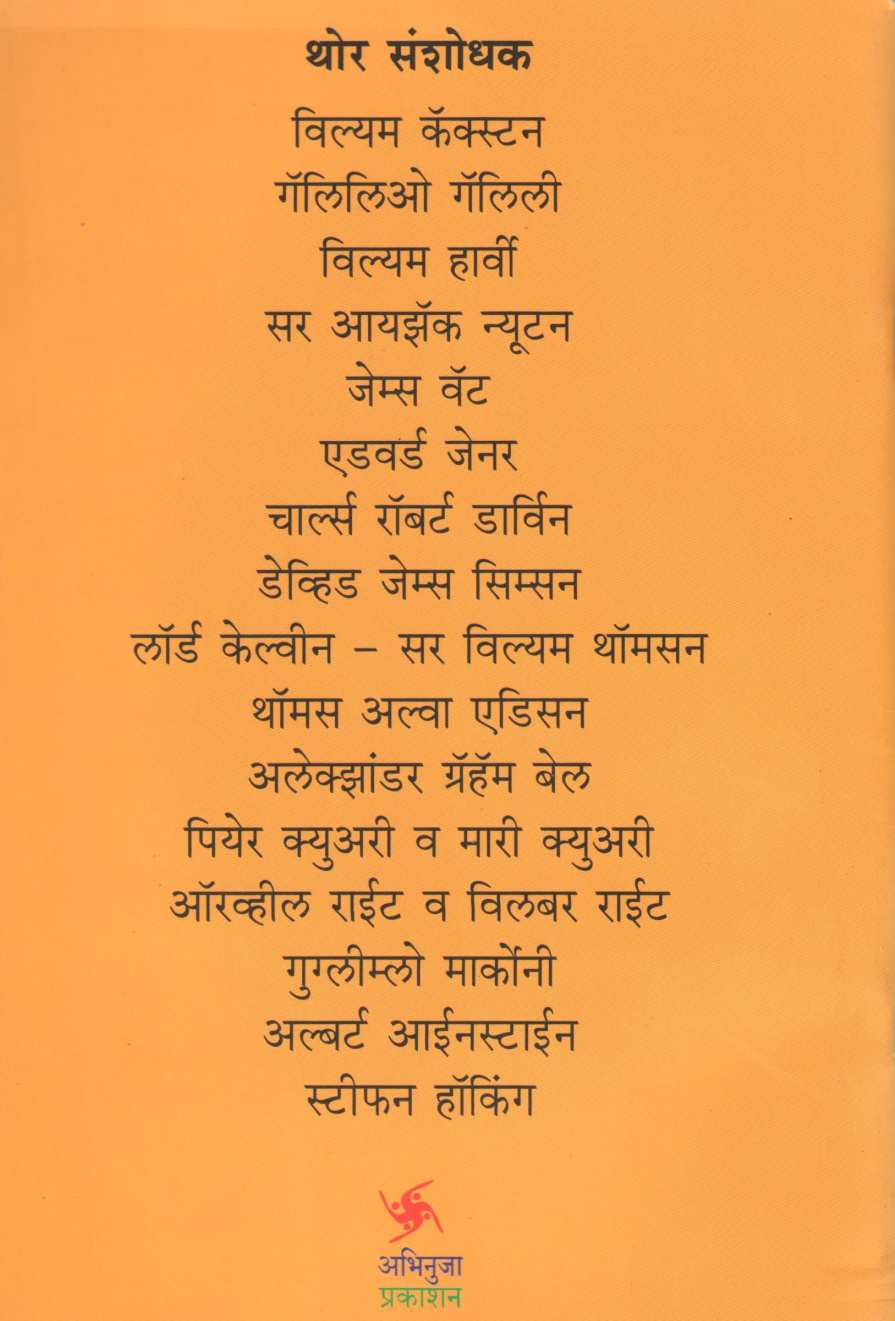 थोर संशोधक
विल्यम कॅक्स्टन
गॅलिलिओ गॅलिली
विल्यम हार्वी
सर आयझॅक न्यूटन
जेम्स वॅट
एडवर्ड जेनर
चार्ल्स रॉबर्ट डार्विन
डेव्हिड जेम्स सिम्सन
लॉर्ड केल्वीन – सर विल्यम थॉमसन
थॉमस अल्वा एडिसन
अलेक्झांडर ग्रॅहॅम बेल
पियेर क्युअरी व मारी क्युअरी
ऑरव्हील राईट व विलबर राईट
गुग्लीम्लो मार्कोनी
अल्बर्ट आईनस्टाईन
स्टीफन हॉकिंग
अभिनुजा
प्रकाशन